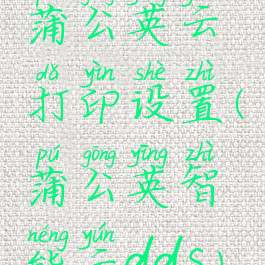 蒲公英云
dǎ yìn shè zhì
打印设置(
pú gōng yīng zhì
蒲公英智
néng yún
能云dds)